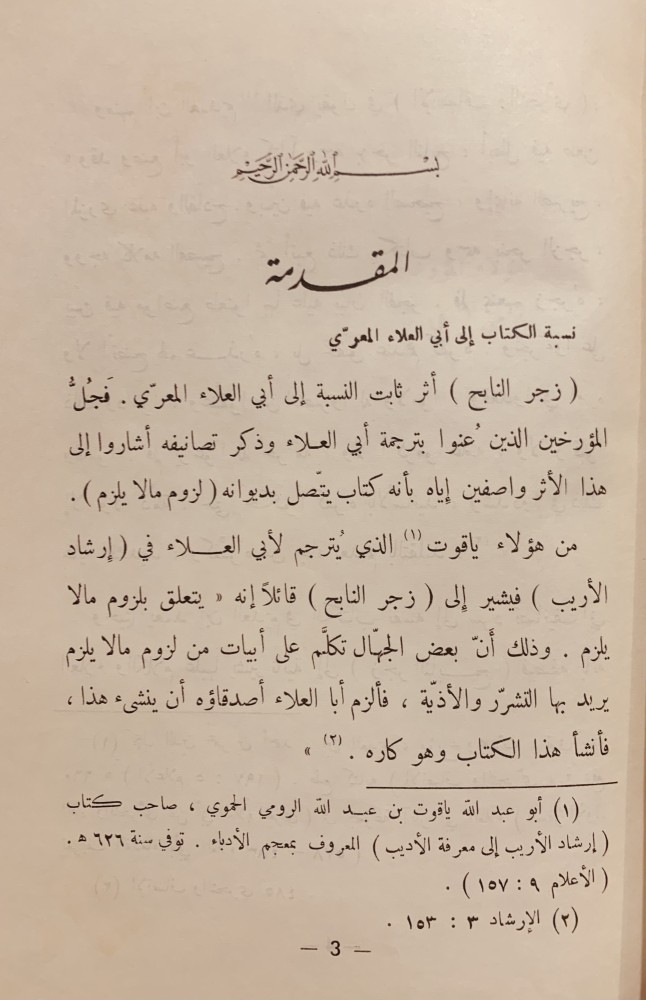 بسم الله الرحمن الرحيم
المقدمة
نسبة الكتاب إلى أبي العلاء المعرّي
( زجر النابح ) أثر ثابت النسبة إلى أبي العلاء المعرّي . فَجُلُّ
المؤرخين الذين عُنوا بترجمة أبي العلاء وذكر تصانيفه أشاروا إلى
هذا الأثر واصفين إياه بأنه كتاب يتّصل بديوانه ( لزوم مالا يلزم ) .
من هؤلاء ياقوت (١) الذي يُترجم لأبي العلاء في ( إرشاد
الأريب ) فيشير إلى ( زجر النابح ) قائلاً إنه « يتعلق بلزوم مالا
يلزم . وذلك أَنّ بعض الجهّال تكلَّم على أبيات من لزوم مالا يلزم
يريد بها التشرّر والأذيّة ، فألزم أبا العلاء أصدقاؤه أن ينشىء هذا ،
فأنشأ هذا الكتاب وهو كاره . (٢) »
(١) أبو عبد الله ياقوت بن عبد الله الرومي الحموي ، صاحب كتاب
( إرشاد الأريب إلى معرفة الأديب ) المعروف بمعجم الأدباء . توفي سنة ٦٢٦ ه .
( الأعلام ٩ : ١٥٧ ) .
(٢) الإرشاد ٣ : ١٥٣ .
— 3 —